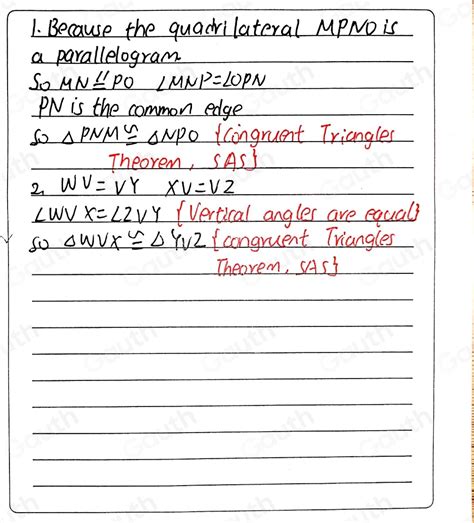 1. Because the quadrilateral MPNO is
a parallelogram
So MN ∥= PO ∠MNP=∠OPN
PN is the common edge
so △PNM≌△NPO {Congruent Triangles
Theorem, SAS}
2. WV=VY XV=VZ
∠WVX=∠ZVY {Vertical angles are equal}
so △WVX≌△YVZ {congruent Triangles
Theorem, SAS}
Gauth